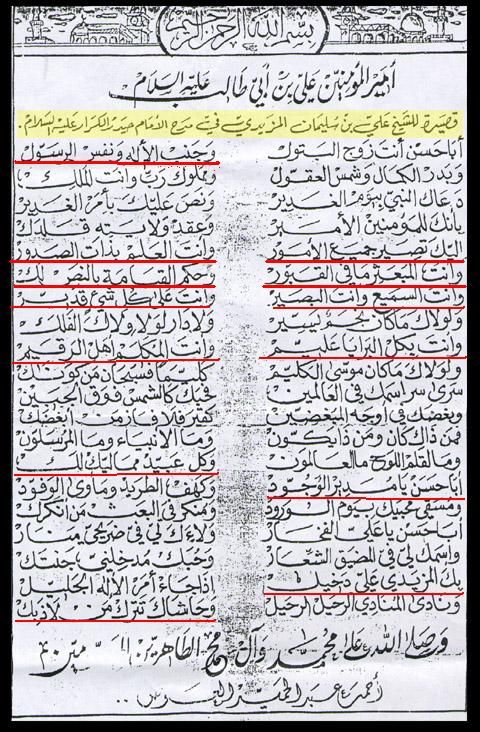 بسم الله الرحمن الرحيم
أمير المؤمنين علي بن أبي طالب عليه السلام
قصيدة للشيخ علي بن سليمان المزيدي في مدح الامام حيدر الكرار عليه السلام.
أبا حسن أنت زوج البتول وجنب الاله ونفس الرسول
وبدر الكمال وشمس العقول ومملوك رب وانت الملك
دعاك النبي بيوم الغدير ونص عليك بأمر الغدير
بأنك للمؤمنين الأمير وعقد ولايته قلدك
اليك تصير جميع الأمور وأنت العليم بذات الصدور
وأنت المبعثر ما في القبور وحكم القيامة بالنص لك
وأنت السميع وانت البصير وانت على كل شيء قدير
ولولاك ما كان نجم يسير ولا دار لولا ولاك الفلك
وأنت بكل البرايا عليم وأنت المكلم اهل الرقيم
ولولاك ما كان موسى الكليم كليما فسبحان من كونك
سرى سر اسمك في العالمين فحبك كالشمس فوق الجبين
وبغضك في اوجه المبغضين كقير فلا فاز من ابغضك
فمن ذاك كان ومن ذا يكون وما الأنبياء وما المرسلون
وما القلم اللوح ما العالمون وكل عبيد مماليك لك
أبا حسن يا مدير الوجود وكهف الطريد ومأوى الوفود
ومسقي محبيك يوم الورود ومنكر في البعث من انكرك
أبا حسن يا علي الفخار ولاءك لي في ضريحي منار
واسمك لي في المضيق الشعار وحبك مدخلني جنتك
بك المزيدي علي دخيل اذا جاء أمر الاله الجليل
ونادى المنادي الرحيل الرحيل وحاشاك تترك من لاذ بك
وصلى الله على محمد وآل محمد الطاهرين
أحمد عبد الحميد